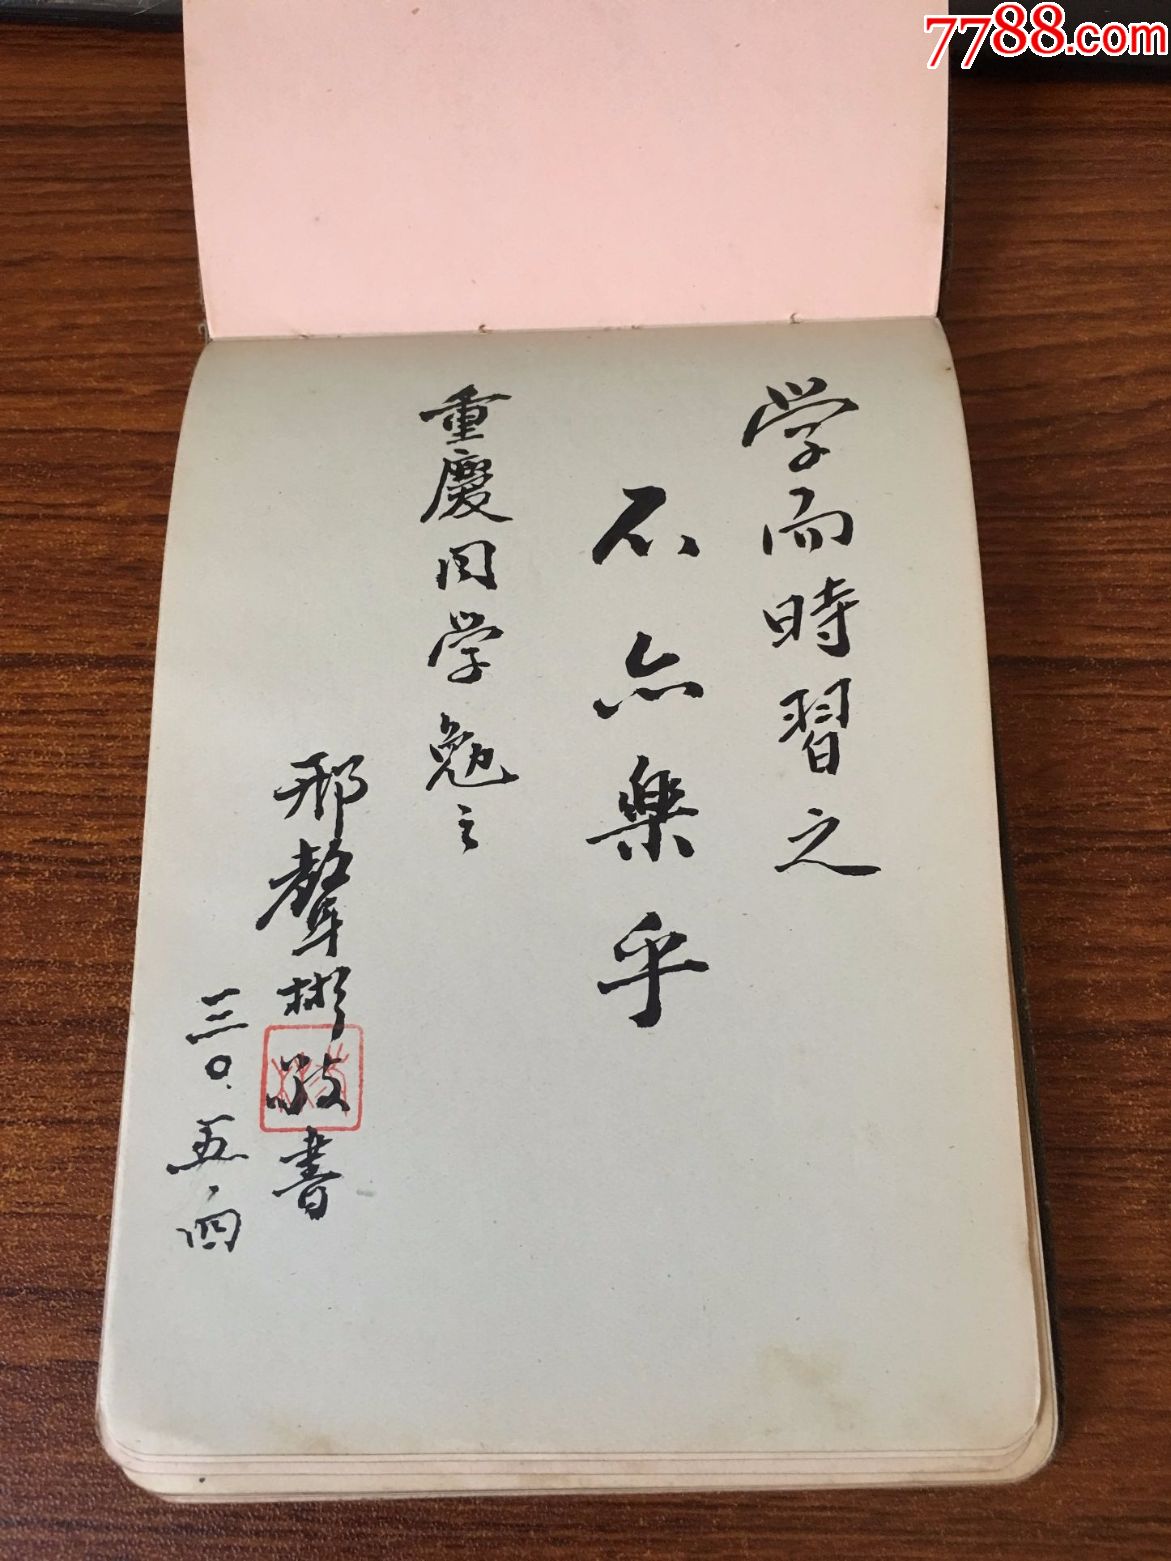 7788.com
学而時習之
不亦樂乎
重慶同学勉之
邢聲彬敬書
三〇.五.四